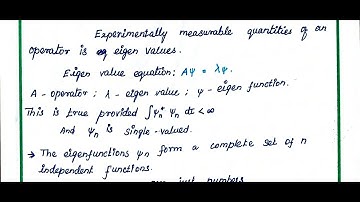 Experimentally measurable quantities of an
operator is eigen values.
Eigen value equation: Aψ = λψ.
A - operator ; λ - eigen value ; ψ - eigen function.
This is true provided ∫ψn* ψn dτ < ∞
And ψn is single-valued.
→ The eigenfunctions ψn form a complete set of n
independent functions.
just numbers